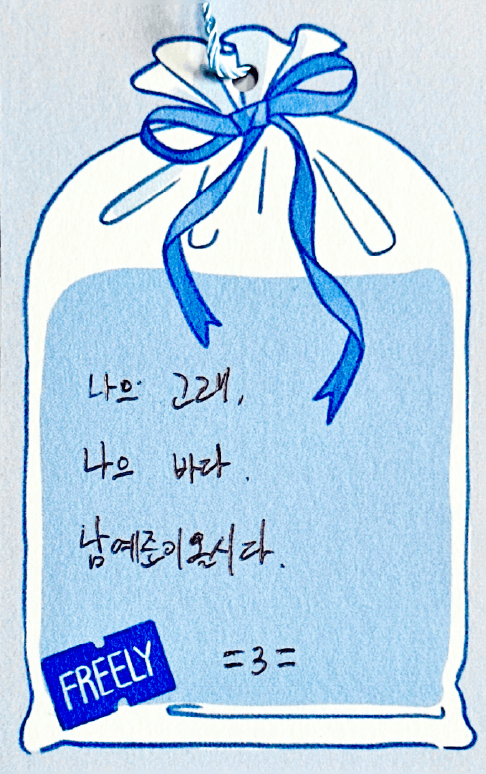 나으 고래,
나으 바다.
남예준이올시다.
FREELY
=3=